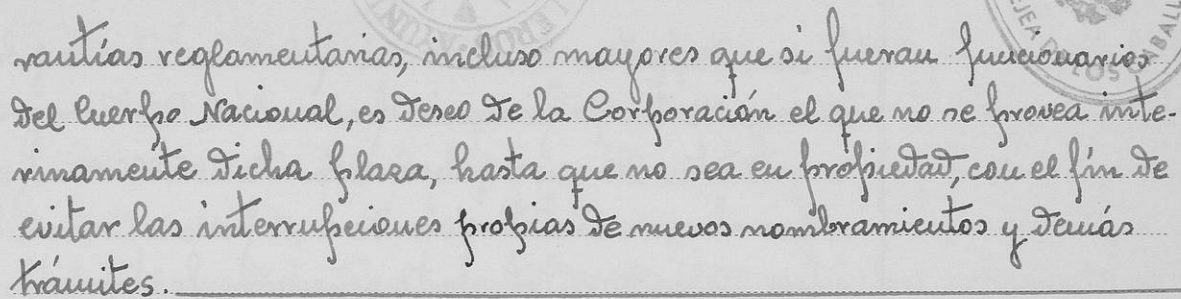 rantías reglamentarias, incluso mayores que si fueran funcionarios
del Cuerpo Nacional, es deseo de la Corporación el que no se provea inte-
rinamente dicha plaza, hasta que no sea en propiedad, con el fín de
evitar las interrupciones propias de nuevos nombramientos y demás
trámites.